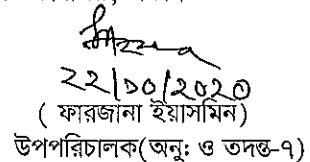 ২২/১০/২০২০
( ফারজানা ইয়াসমিন)
উপপরিচালক(অনু: ও তদন্ত-৭)